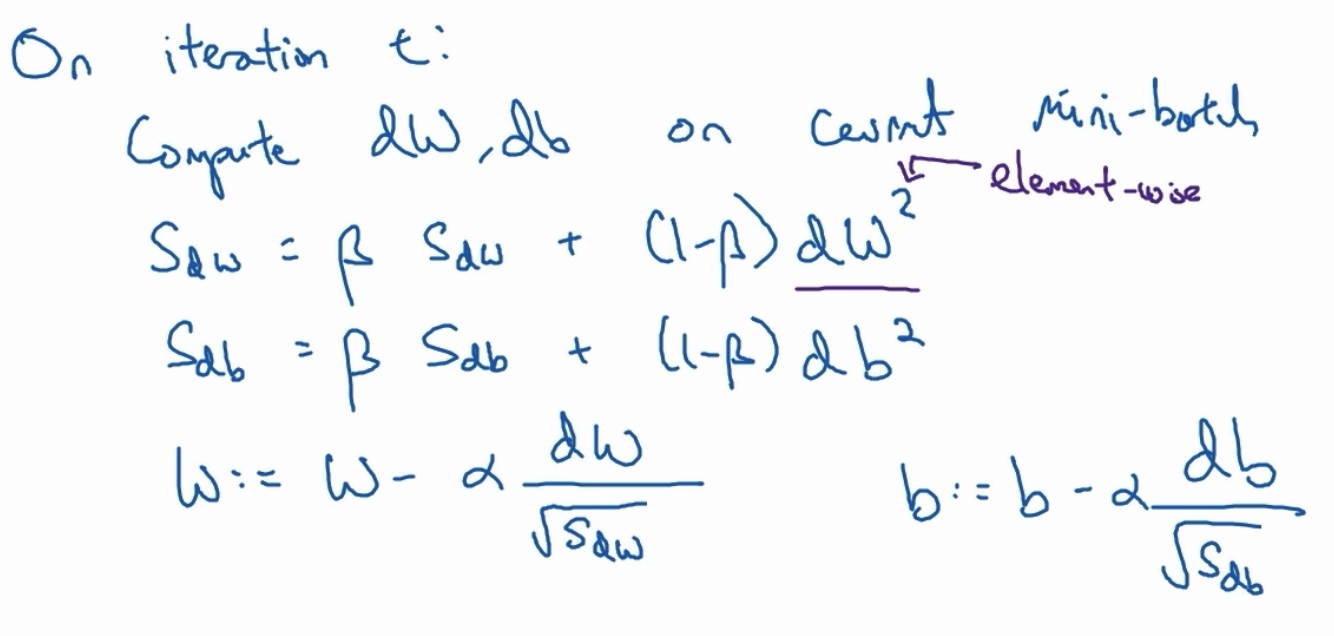 On iteration t:
Compute dW, db on current mini-batch
element-wise
S_dw = β S_dw + (1-β) dW²
S_db = β S_db + (1-β) db²
W := W - α dw/√S_dw b := b - α db/√S_db